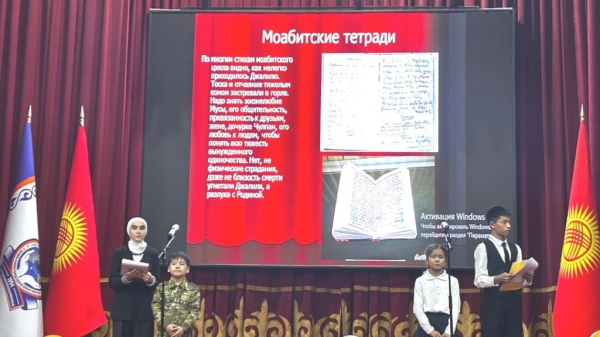 Моабитские тетради
По многим стихам моабитского
цикла видно, как нелегко
приходилось Джалилю.
Тоска и отчаяние тяжелым
комом застревали в горле.
Надо знать жизнелюбие
Мусы, его общительность,
привязанность к друзьям,
жене, дочурке Чулпан, его
любовь к людям, чтобы
понять всю тяжесть
вынужденного
одиночества. Нет, не
физические страдания,
даже не близость смерти
угнетали Джалиля, а
разлука с Родиной.
Активация Windows
Чтобы активировать Windows,
перейдите в раздел "Парамет